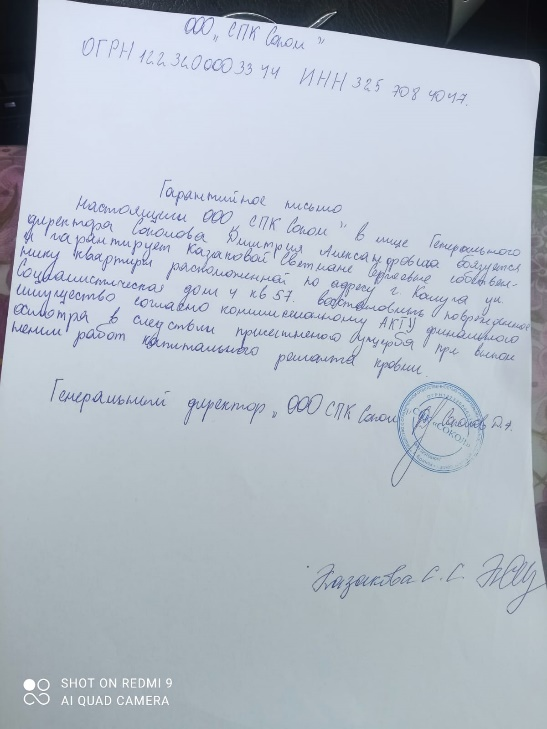 ООО "СПК Сокол"
ОГРН 1223200003344 ИНН 325 708 4047.
Гарантийное письмо
Настоящим ООО СПК Сокол" в лице Генерального
директора Соколова Дмитрия Александровича обязуется
и гарантирует Казаковой Светлане Сергеевне собствен-
нику квартиры расположенной по адресу г. Калуга ул.
Социалистическая дом 4 кв 57. восстановить поврежденное
имущество согласно комиссионному АКТУ финального
осмотра в следствии причененого ущерба при выпол
нении работ капитального ремонта кровли.
Генеральный директор „ООО СПК Сокол Соколов Д.А.
«СОКОЛ»
Казакова С. С.
SHOT ON REDMI 9
AI QUAD CAMERA